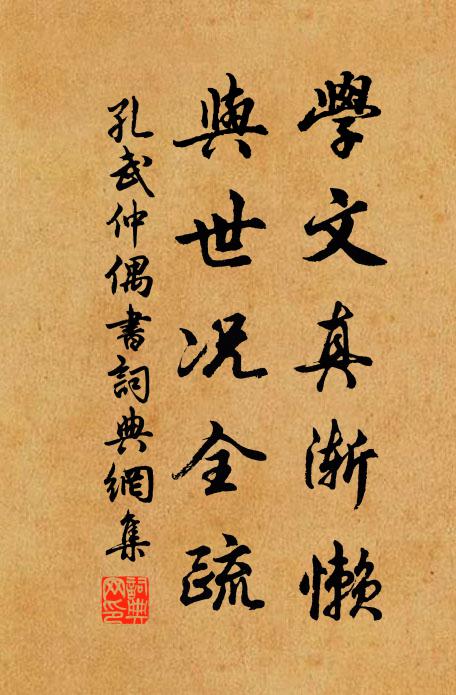 學文真漸懶
與世況全疏
孔武仲偶書詞典網集
詞典網印